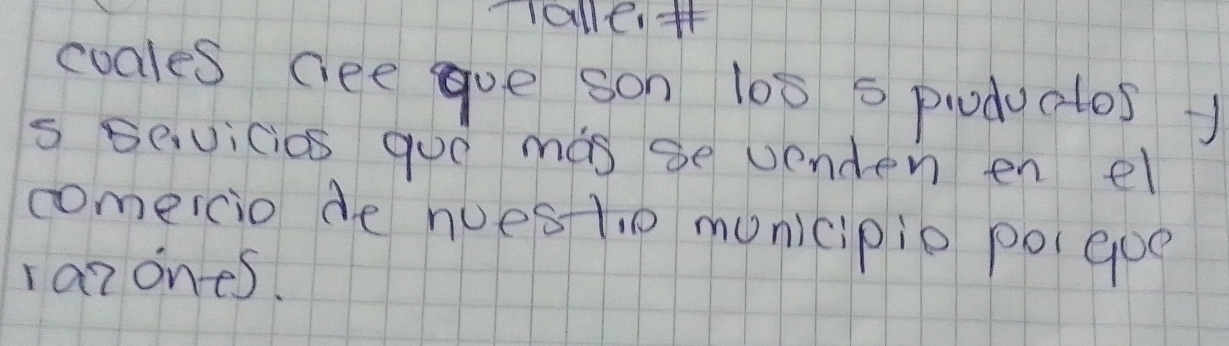 Taller #
cuales cree que son los 5 productos y
5 servicios que más se venden en el
comercio de nuestro municipio por que
razónes.